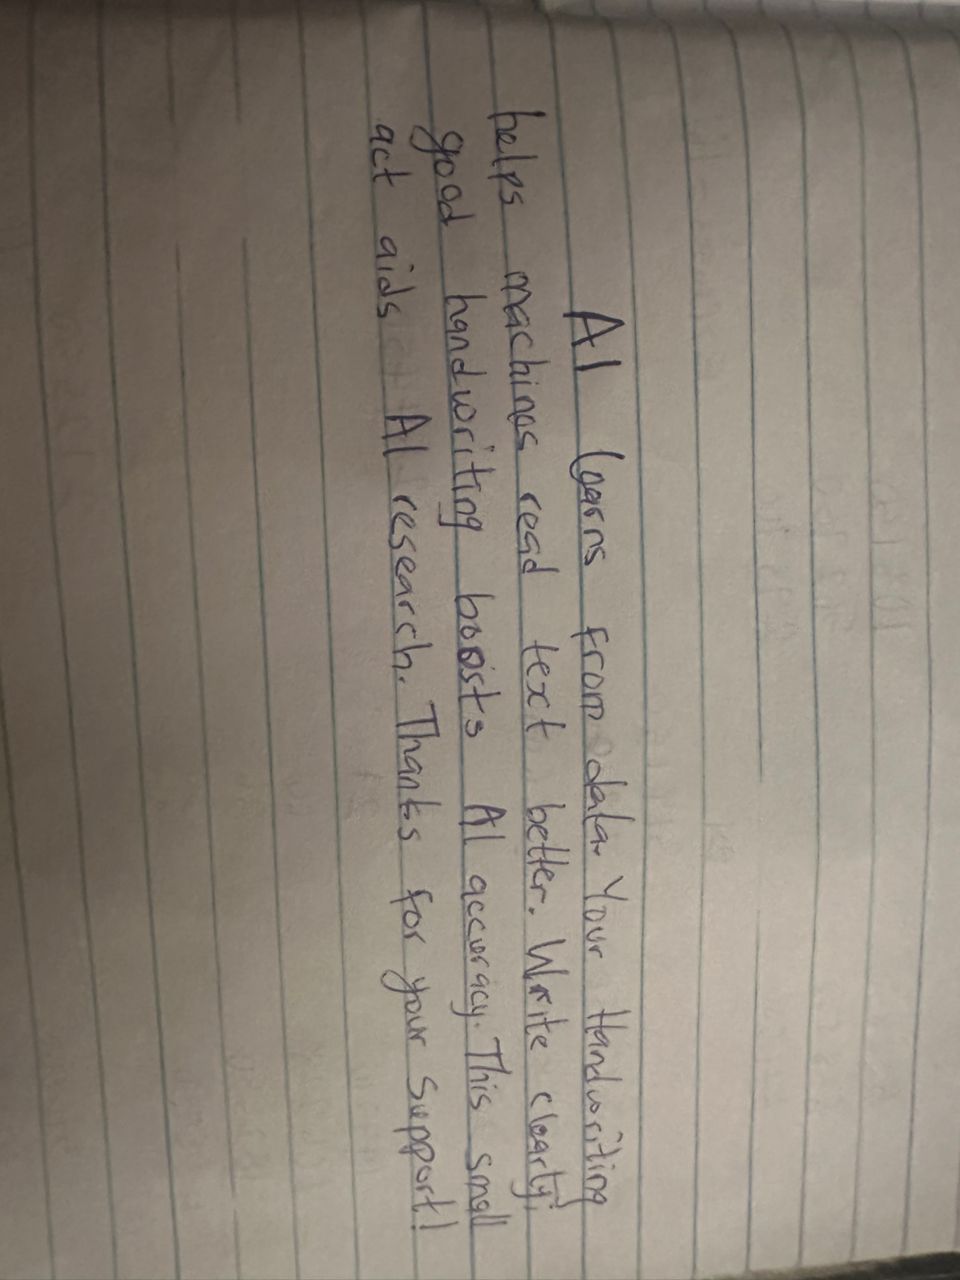 AI learns from data. Your Handwriting
helps machines read text better. Write clearly;
good handwriting boosts AI accuracy. This small
act aids AI research. Thanks for your support!